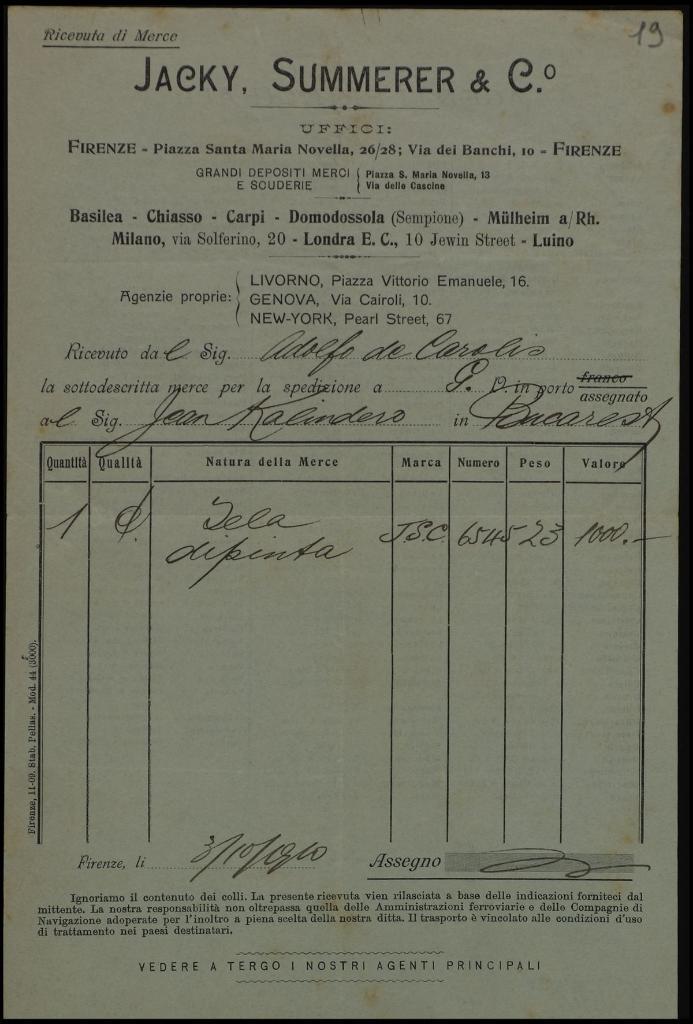 Ricevuta di Merce
19
JACKY, SUMMERER & C.º
UFFICI:
FIRENZE - Piazza Santa Maria Novella, 26/28; Via dei Banchi, 10 - FIRENZE
GRANDI DEPOSITI MERCI E SCUDERIE { Piazza S. Maria Novella, 13
Via delle Cascine
Basilea - Chiasso - Carpi - Domodossola (Sempione) - Mülheim a/Rh.
Milano, via Solferino, 20 - Londra E. C., 10 Jewin Street - Luino
Agenzie proprie: { LIVORNO, Piazza Vittorio Emanuele, 16.
GENOVA, Via Cairoli, 10.
NEW-YORK, Pearl Street, 67
Ricevuto dal Sig. Adolfo de Carolis
la sottodescritta merce per la spedizione a G. P. in porto franco assegnato
al Sig. Jean Kalindero in Bucarest
Quantità Qualità Natura della Merce Marca Numero Peso Valore
1 Tela dipinta J.S.C. 6545 23 1000.-
Firenze, 11-09. Stab. Pellas. - Mod. 44 (3000).
Firenze, li 3/10/1910 Assegno
Ignoriamo il contenuto dei colli. La presente ricevuta vien rilasciata a base delle indicazioni forniteci dal
mittente. La nostra responsabilità non oltrepassa quella delle Amministrazioni ferroviarie e delle Compagnie di
Navigazione adoperate per l'inoltro a piena scelta della nostra ditta. Il trasporto è vincolato alle condizioni d'uso
di trattamento nei paesi destinatari.
VEDERE A TERGO I NOSTRI AGENTI PRINCIPALI